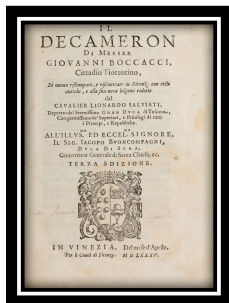 IL
DECAMERON
DI MESSER
GIOVANNI BOCCACCI,
Cittadin Fiorentino,
Di nuouo ristampato, e riscontrato in Firenze con testi
antichi, e alla sua vera lezione ridotto
dal
CAVALIER LIONARDO SALVIATI,
Deputato dal Serenissimo GRAN DVCA di Toscana,
Con permessione de' Superiori, e Priuilegi di tutti
i Principi, e Republiche.
ALL'ILLVS.MO ED ECCEL. SIGNORE,
IL SIG. IACOPO BVONCOMPAGNI,
DVCA DI SORA,
Gouernator Generale di Santa Chiesa, ec.
TERZA EDIZIONE.
IN VENEZIA, Del mese d'Aprile.
Per li Giunti di Firenze. M D LXXXV.